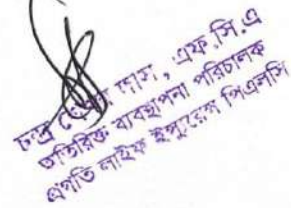 চন্দ্র দাস, এফ.সি.এ
অতিরিক্ত ব্যবস্থাপনা পরিচালক
প্রগতি লাইফ ইন্স্যুরেন্স পিএলসি